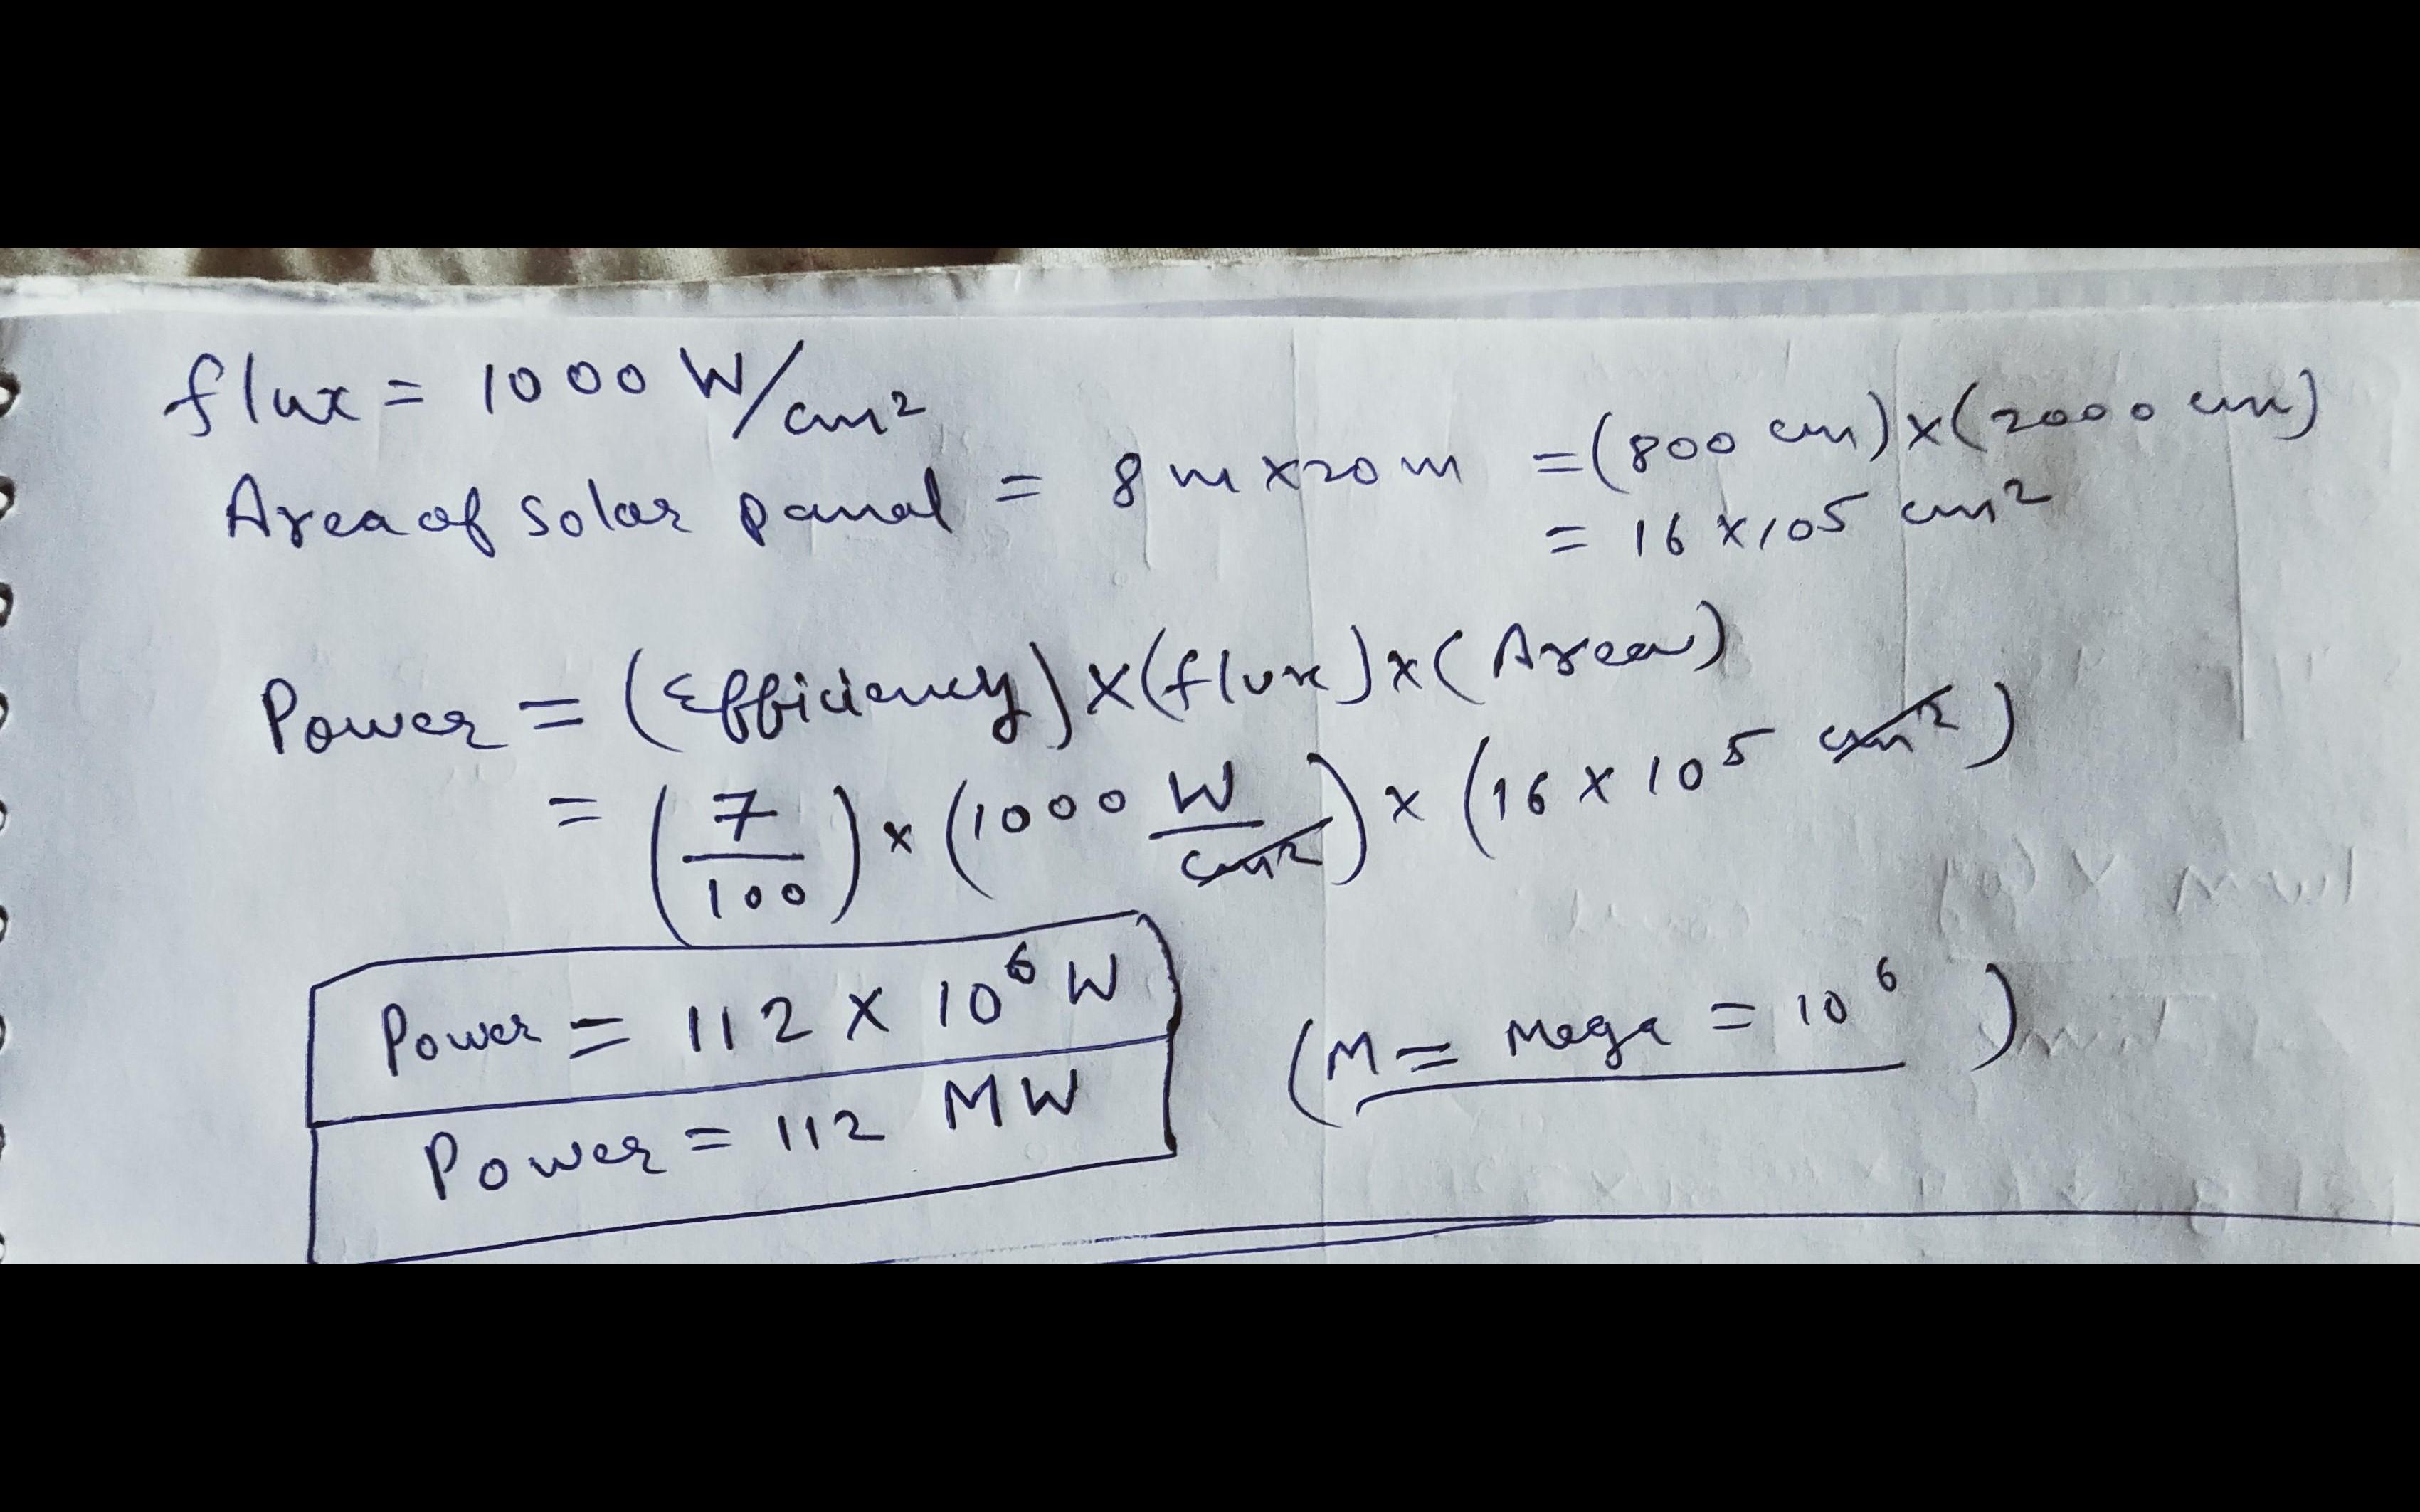 flux = 1000 W/cm²
Area of solar panal = 8 m x 20 m = (800 cm) x (2000 cm)
= 16 x 10⁵ cm²
Power = (Efficiency) x (flux) x (Area)
= (7/100) x (1000 W/cm²) x (16 x 10⁵ cm²)
Power = 112 x 10⁶ W
(M = Mega = 10⁶)
Power = 112 MW